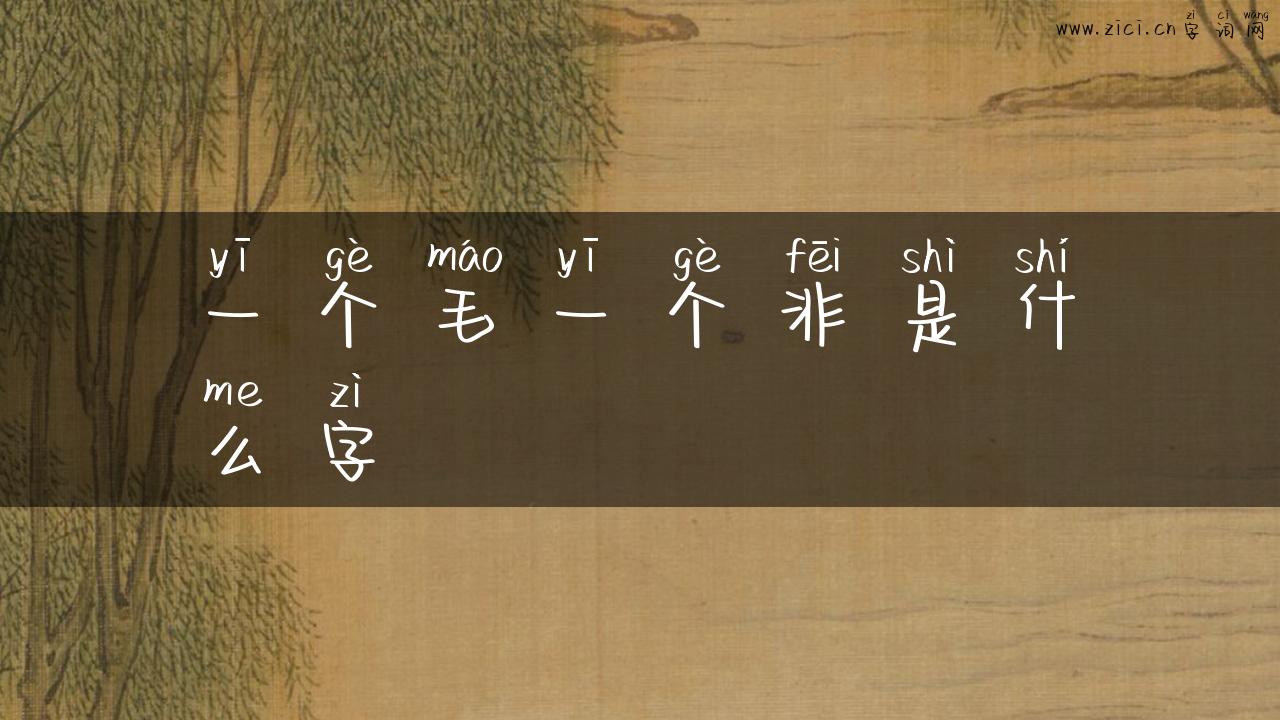 zì cí wǎng
www.zici.cn 字 词 网
yī gè máo yī gè fēi shì shí
一 个 毛 一 个 非 是 什
me zì
么 字